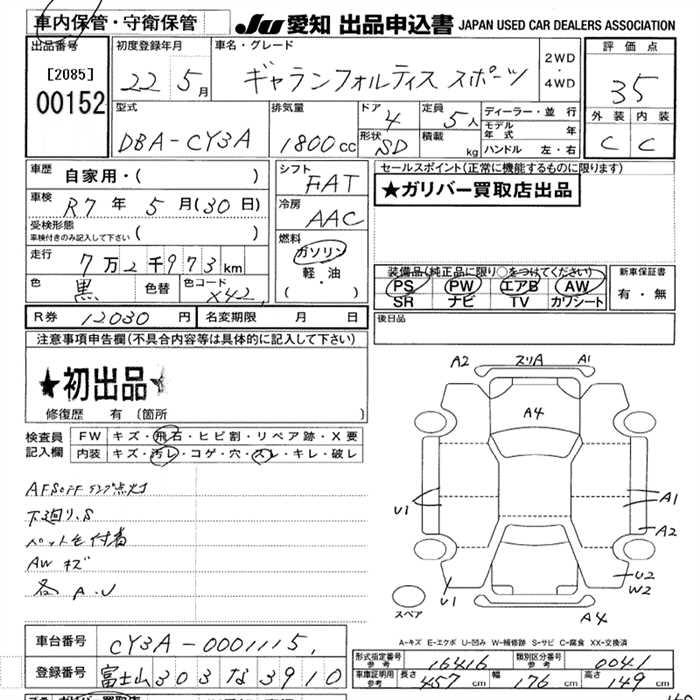 車内保管・守衛保管
JU 愛知 出品申込書 JAPAN USED CAR DEALERS ASSOCIATION
出品番号
[2085]
00152
初度登録年月
22 5月
車名・グレード
ギャランフォルティス スポーツ
2WD
・
4WD
評価点
35
外装 内装
C C
型式
DBA-CY3A
排気量
1800cc
ドア 4
形状 SD
定員 5人
積載 kg
ディーラー・並行
モデル年式 年
ハンドル 左・右
車歴 自家用・( )
車検 R7年 5月(30日)
受検形態
車検付きのみ記入して下さい ( )
走行 7万2千973km
色 黒 色替 色コード X42
シフト
FAT
冷房
AAC
燃料
ガソリン
軽・油
( )
セールスポイント(正常に機能するものに限ります)
★ガリバー買取店出品
装備品(純正品に限り○をつけてください)
PS PW エアB AW
SR ナビ TV カワシート
新車保証書
有・無
R券 12030円 名変期限 月 日
後日品
注意事項申告欄(不具合内容等は具体的に記入して下さい)
★初出品★
修復歴 有 〔箇所 〕
検査員記入欄
FW キズ・飛石・ヒビ割・リペア跡・X要
内装 キズ・汚レ・コゲ・穴・スレ・キレ・破レ
AFSOFFランプ点灯
下廻り.S
ペット毛付着
AWキズ
各 A.U
A2 スリA A1
A4
U1 A1
A2
U1 U2
W2
スペア
A4
A-キズ E-エクボ U-凹み W-補修跡 S-サビ C-腐食 XX-交換済
車台番号 CY3A-0001115
登録番号 富士山 303 な 3910
形式指定番号 参考 16416 類別区分番号 参考 0041
車庫証明用 参考 長さ 457cm 幅 176cm 高さ 149cm